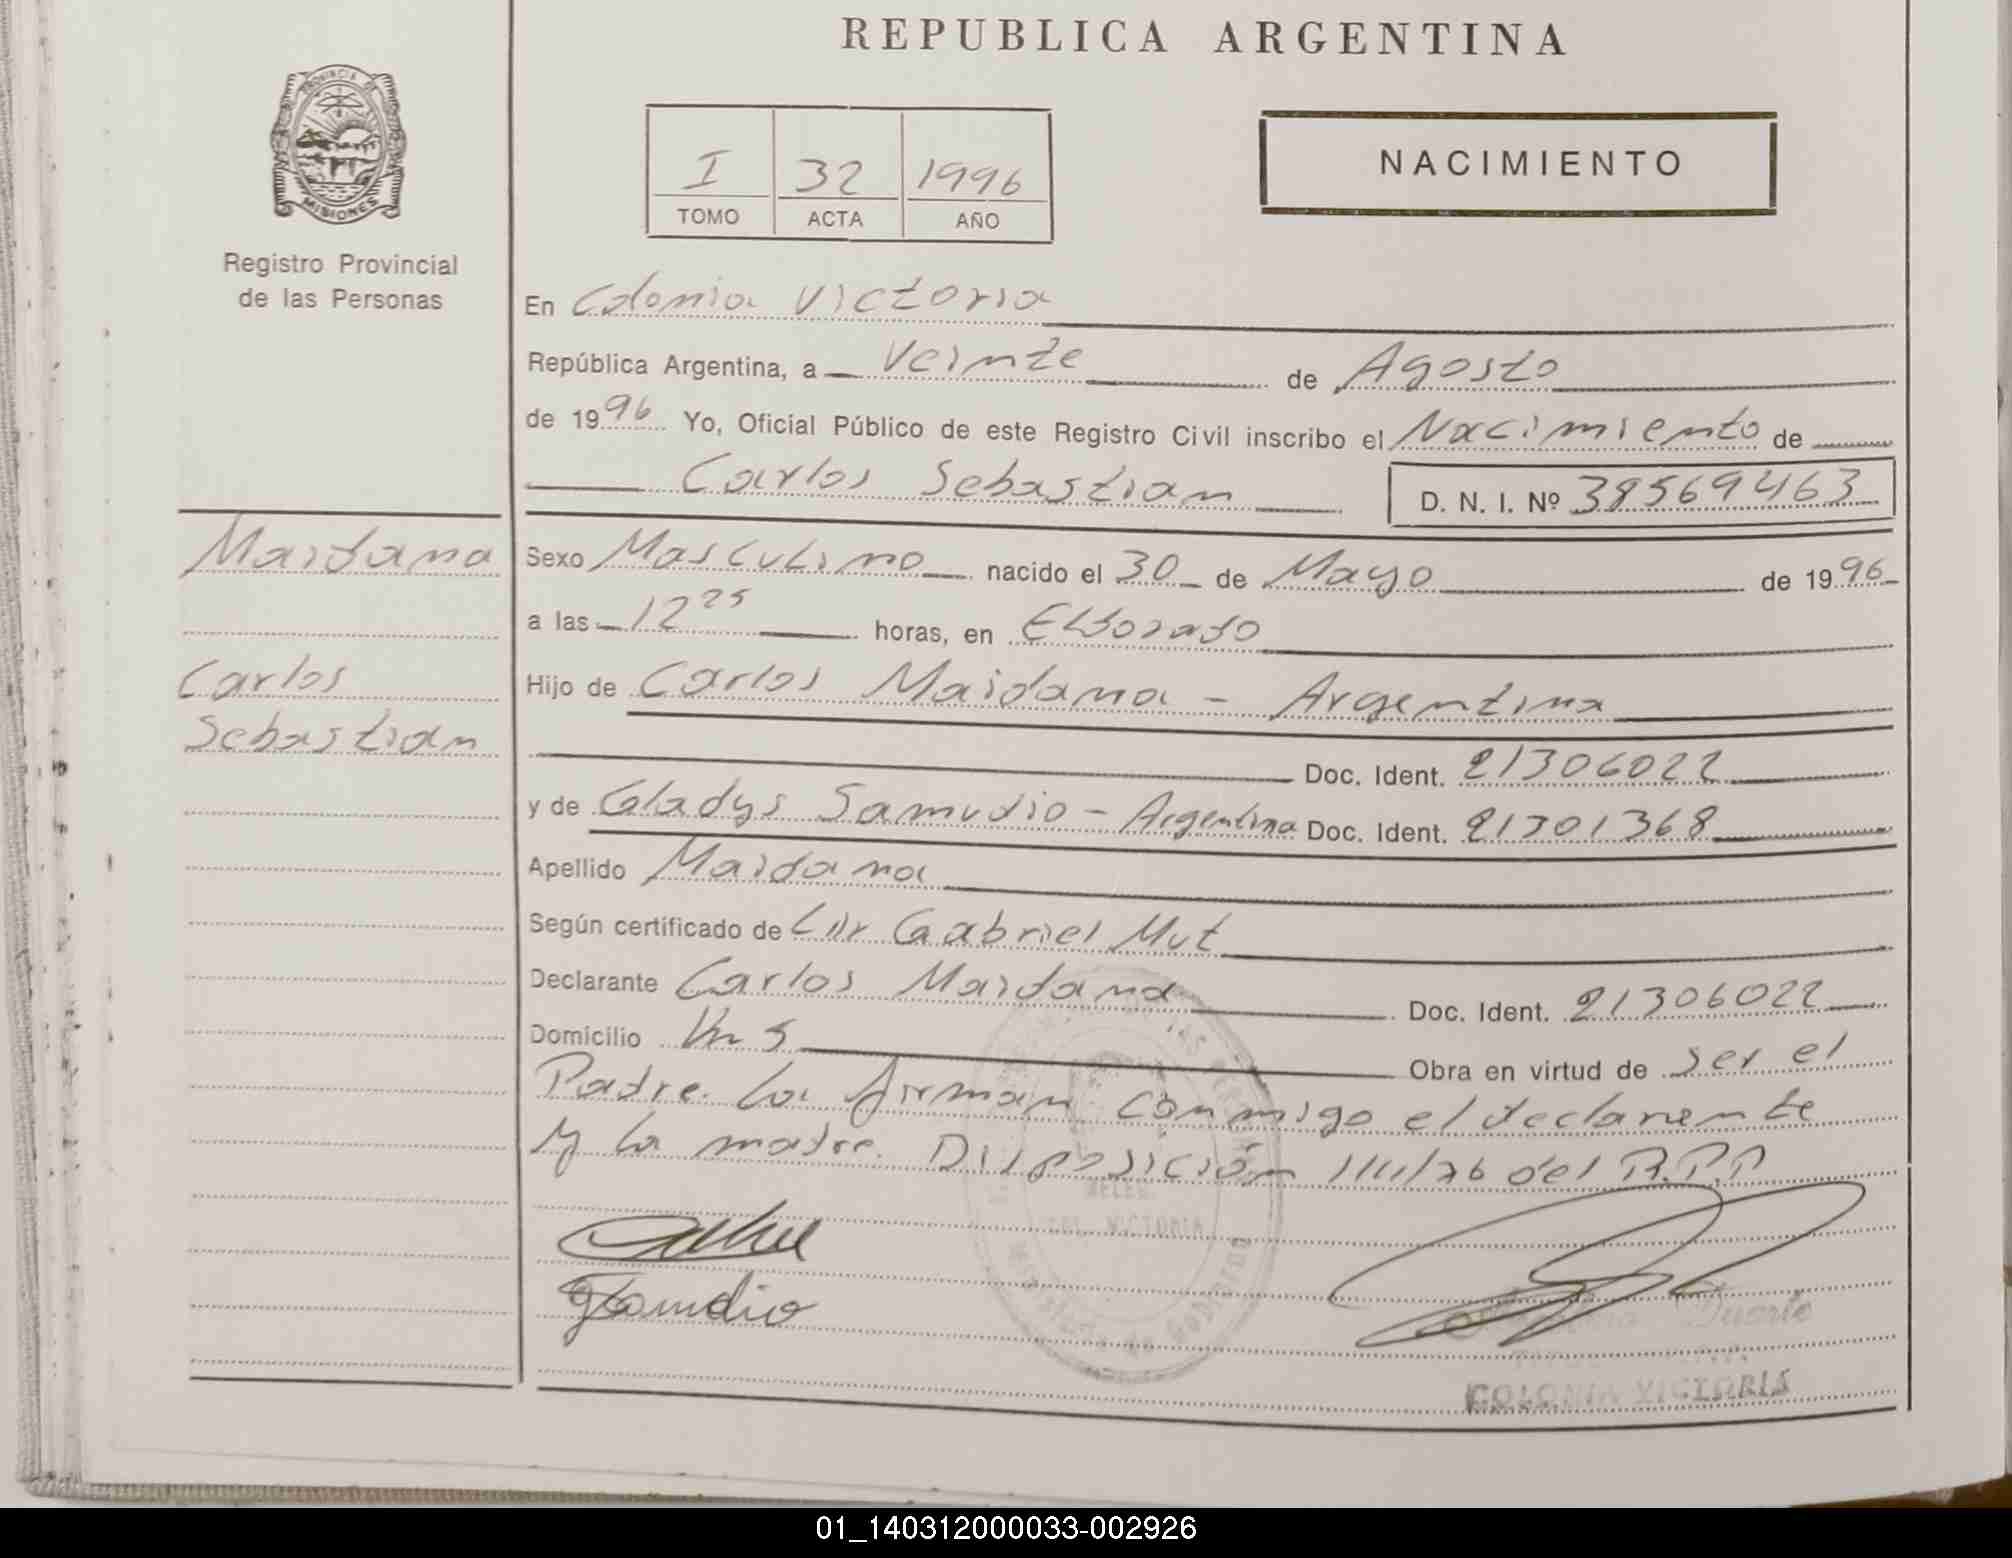 REPUBLICA ARGENTINA
PROVINCIA DE
MISIONES
Registro Provincial
de las Personas
I 32 1996
TOMO ACTA AÑO
NACIMIENTO
En Colonia Victoria
República Argentina, a Veinte de Agosto
de 1996 Yo, Oficial Público de este Registro Civil inscribo el Nacimiento de
Carlos Sebastian D. N. I. Nº 38569463
Maidana
Carlos
Sebastian
Sexo Masculino nacido el 30 de Mayo de 1996
a las 12 25 horas, en Eldorado
Hijo de Carlos Maidana - Argentina
Doc. Ident. 21306022
y de Gladys Samudio - Argentina Doc. Ident. 21301368
Apellido Maidana
Según certificado de Gabriel Mut
Declarante Carlos Maidana Doc. Ident. 21306022
Domicilio Km 5 Obra en virtud de ser el
Padre. La firman conmigo el declarante
y la madre. Disposición 1111/76 del R.P.P
VICTORIA
Duarte
COLONIA VICTORIA
01_140312000033-002926